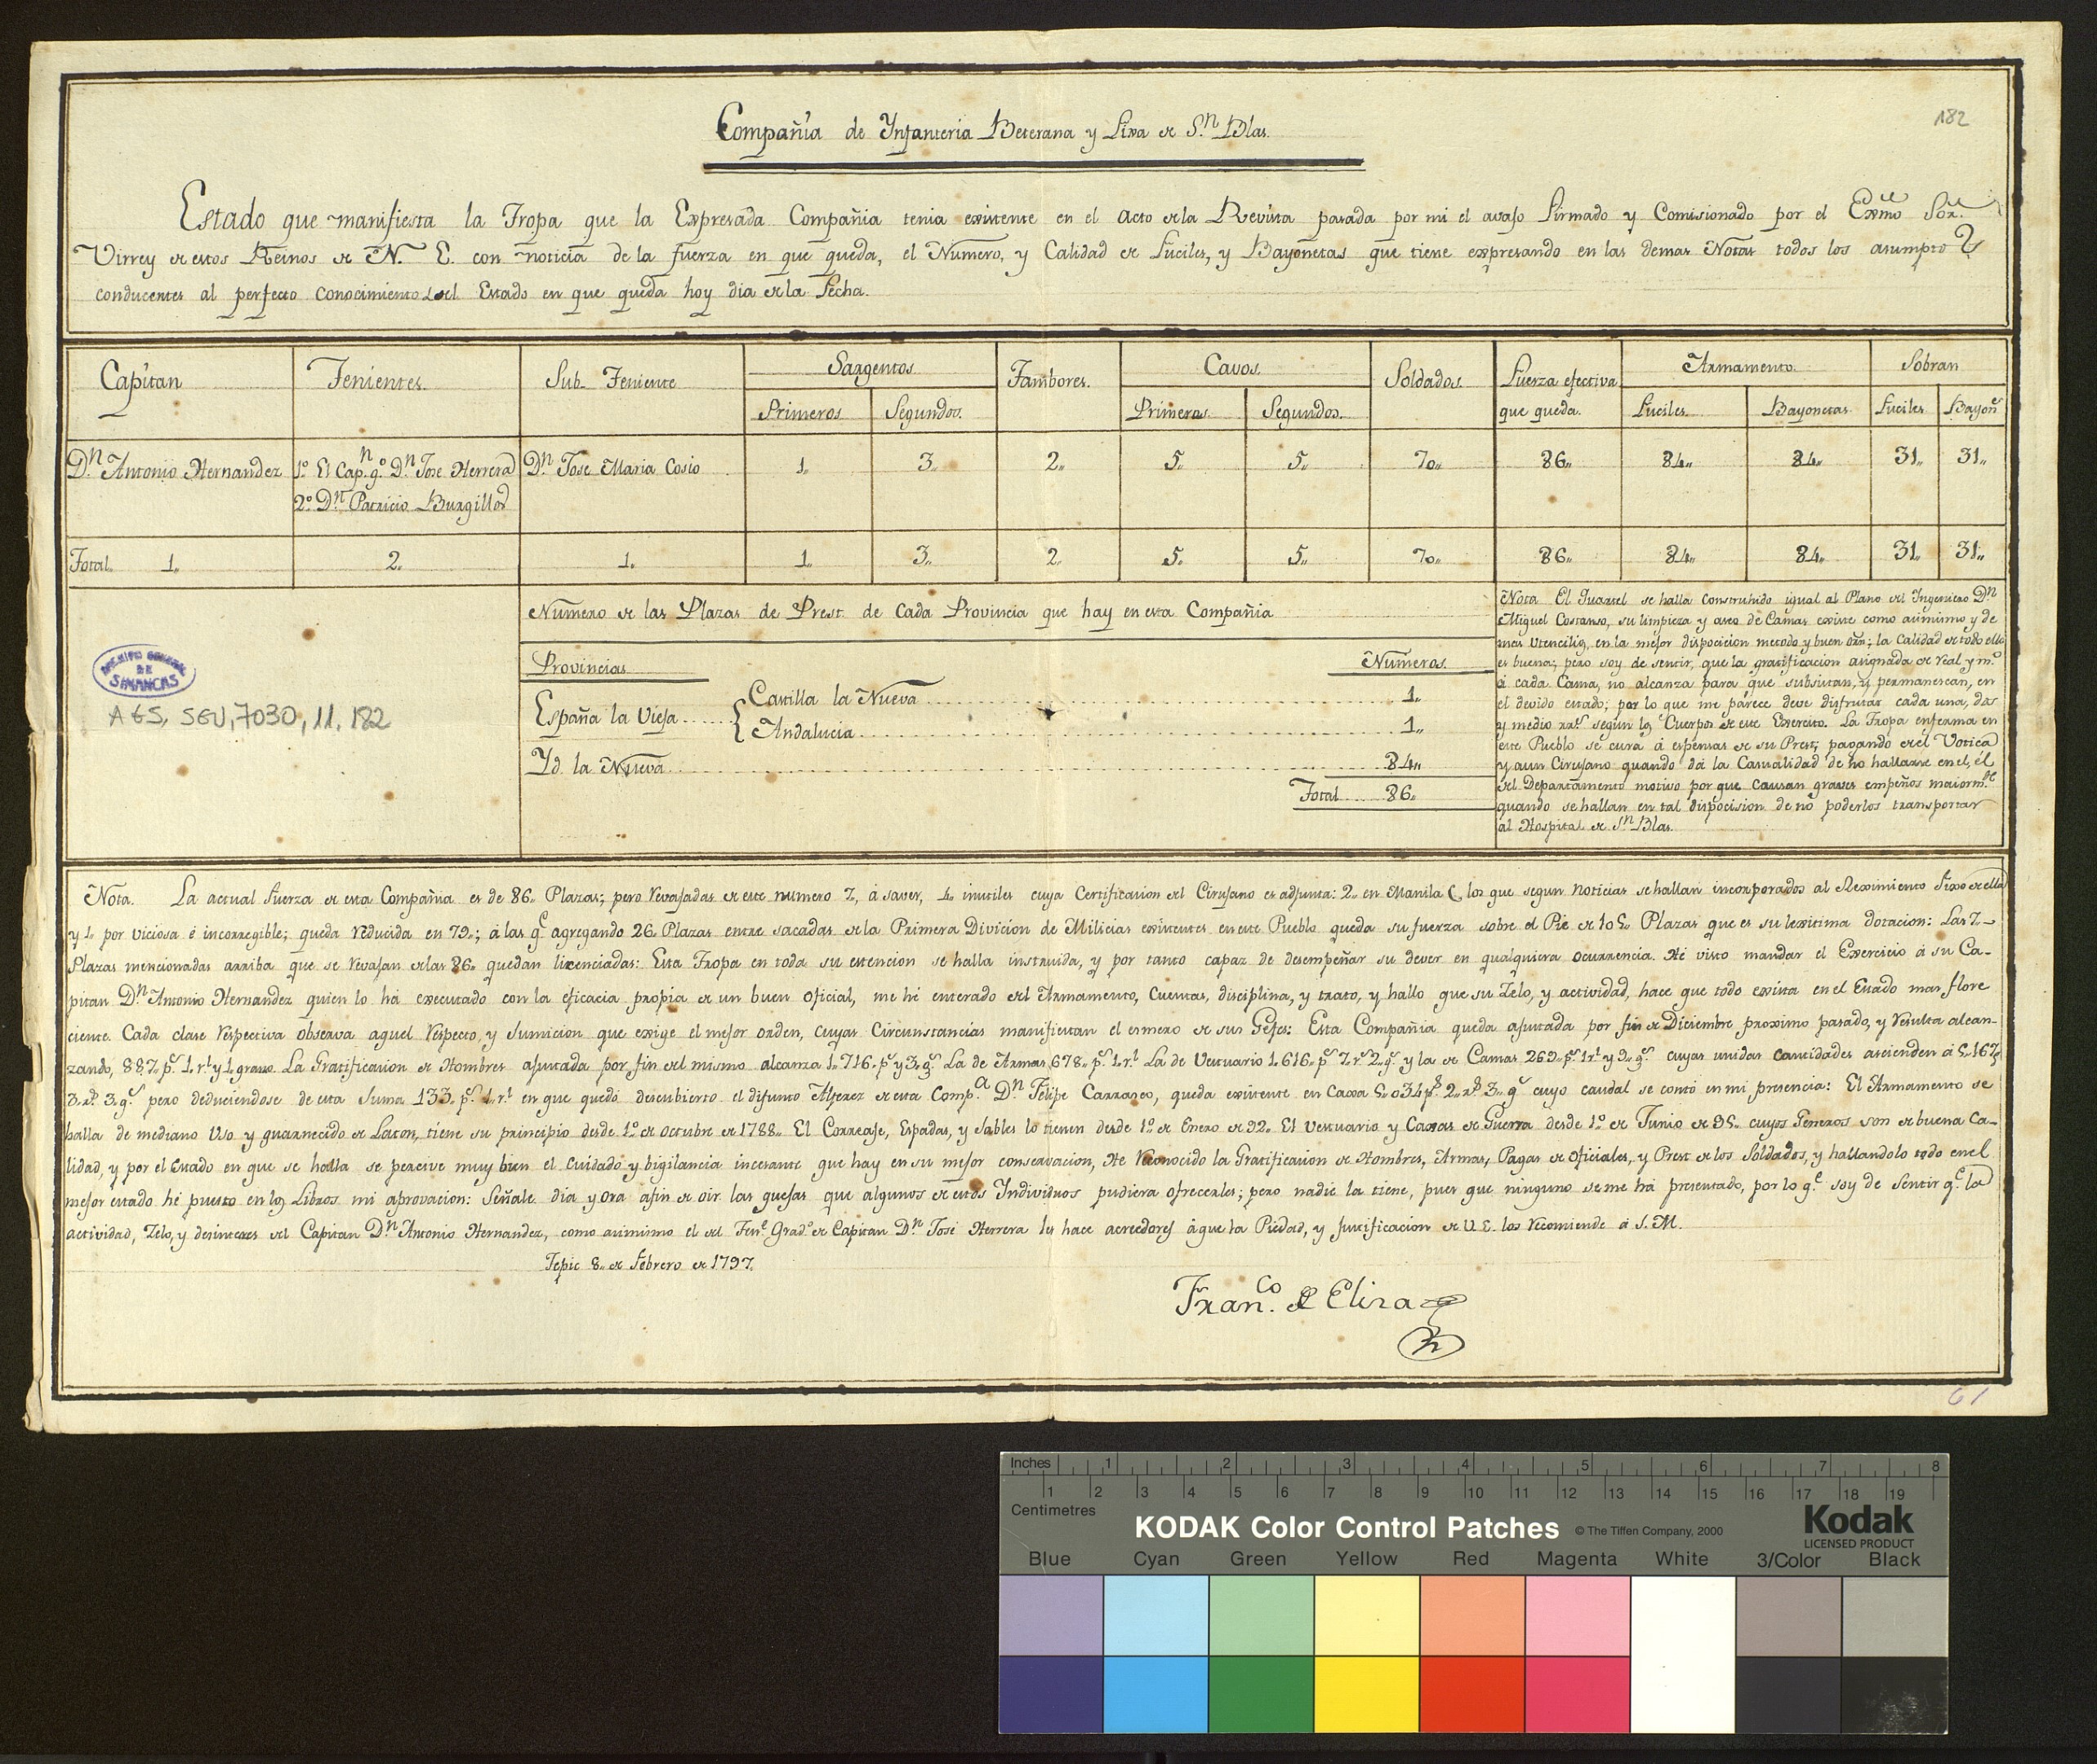 182
Compañia de Ynfanteria Beterana y Fixa de S.n Blas.
Estado que manifiesta la Tropa que la Expresada Compañia tenia existente en el acto de la Revista pasada por mi el avajo firmado y Comisionado por el Exmo Sor.
Virrey de estos Reinos de N. E. con noticia de la fuerza en que queda, el Numero, y Calidad de Fuciles, y Bayonetas que tiene expresando en las demas Notas todos los asumptos
conducentes al perfecto conocimiento del Estado en que queda hoy dia de la Fecha.
Capitan Tenientes. Sub-Teniente Sargentos Tambores. Cavos. Soldados. Fuerza efectiva que queda. Armamento. Sobran
Primeros Segundos. Primeros. Segundos. Fuciles. Bayonetas Fuciles Bayons
Dn. Antonio Hernandez 1º. El Cap.n g.º Dn. Jose Herrera Dn. Jose Maria Cosio 1,, 3,, 2,, 5,, 5,, 70,, 86,, 84,, 84,, 31,, 31,,
2º. Dn. Patricio Burgillos
Total. 1,, 2,, 1,, 1,, 3,, 2,, 5,, 5,, 70,, 86,, 84,, 84,, 31,, 31,,
Numero de las Plazas de Prest. de Cada Provincia que hay en esta Compañia
Provincias Numeros.
España la Vieja { Castilla la Nueva 1,,
Andalucia 1,,
Yd. la Nueva 84,,
Total 86,,
Nota. El Quartel se halla construhido igual al Plano del Ingeniero Dn
Miguel Costanso, su limpieza y aseo de Camas existe como asimismo y de
mas Utencilios, en la mejor disposicion metodo y buen orn; la calidad de todo ello
es buena; pero soy de sentir, que la gratificacion asignada de real y mº
á cada Cama, no alcanza para que subsistan, y permanescan, en
el devido estado; por lo que me parece deve disfrutar cada una, dos
y medio rrs. segun los Cuerpos de este Exercito. La Tropa enferma en
este Pueblo se cura á espensas de su Prest; pagando de él Votica
y aun Cirujano quando dá la Casualidad de no hallarse en el, él
del Departamento motivo por que causan graves empeños maiormte
quando se hallan en tal dispocision de no poderlos transportar
al Hospital de Sn. Blas.
ARCHIVO GENERAL DE SIMANCAS
AGS, SGU, 7030, 11, 182
Nota. La actual fuerza de esta Compañia es de 86,, Plazas; pero revajadas de este numero 7,, á saver, 4,, inutiles cuya Certificacion del Cirujano es adjunta: 2,, en Manila (los que segun noticias se hallan incorporados al Reximiento Fixo de ella
y 1,, por viciosa é incorregible; queda reducida en 79,,; á las q.e agregando 26 Plazas entre sacadas de la Primera División de Milicias existentes en este Pueblo queda su fuerza sobre el Pie de 105,, Plazas que es su lexitima dotacion: Las 7,,
Plazas mencionadas arriba que se revajan de las 86,, quedan licenciadas: Esta Tropa en toda su estencion se halla instruida, y por tanto capaz de desempeñar su dever en qualquiera ocurrencia. Hé visto mandar el Exercicio á su Ca-
pitan Dn. Antonio Hernandez quien lo há executado con la eficacia propia de un buen oficial, me hé enterado del Armamento, Cuentas, disciplina, y trato, y hallo que su Zelo, y actividad, hace que todo exista en el Estado mas flore
ciente. Cada clase respectiva observa aquel respecto, y sumicion que exige el mejor orden, cuyas Circunstancias manifiestan el esmero de sus Gefes: Esta Compañia queda ajustada por fin de Diciembre proximo pasado, y resulta alcan-
zando, 887,, p.s 1,, r.l y 1,, grano. La Gratificacion de Hombres ajustada por fin del mismo alcanza 1,,716,, p.s y 3,, g.s La de Armas 678,, p.s 1,, r.l La de Vestuario 1,,616,, p.s 7,, r.s 2,, g.s y la de Camas 269,, p.s 1 r.l y 9,, g.s cuyas unidas cantidades ascienden á 5,,167 p.s
3,, r.s 3,, g.s pero deduciendose de esta suma 133,, p.s 1,, r.l en que quedó descubierto el difunto Alferez de esta Comp.a Dn. Felipe Carrasco, queda existente en Caxa 5,,034 p.s 2,, r.s 3,, g.s cuyo caudal se contó en mi presencia: El Armamento se
halla de mediano Uso y guarnecido de Laton, tiene su principio desde 1º. de octubre de 1788,, El Correaje, Espadas, y Sables lo tienen desde 1º. de Enero de 92,, El Vestuario y Casas de Guerra desde 1º. de Junio de 95,, cuyos Generos son de buena Ca-
lidad, y por el Estado en que se halla se percive muy bien el cuidado y bigilancia incesante que hay en su mejor conservacion, He reconocido la Gratificacion de Hombres, Armas, Pagas de oficiales, y Prest de los Soldados, y hallandolo todo en el
mejor estado hé puesto en los Libros mi aprovacion: Señalé dia y ora afin de oir las quejas que algunos de estos Individuos pudiera ofrecerles; pero nadie la tiene, pues que ninguno se me há presentado, por lo q.e soy de Sentir q.e la
actividad, Zelo, y desinteres del Capitan Dn. Antonio Hernandez, como asimismo el del Ten.e Grad.º de Capitan Dn. José Herrera les hace acreedores á que la Piedad, y justificacion de V.E. los recomiende á S.M.
Tepic 8,, de Febrero de 1797.
Fran.co de Eliza
61
Inches 1 2 3 4 5 6 7 8
1 2 3 4 5 6 7 8 9 10 11 12 13 14 15 16 17 18 19
Centimetres
KODAK Color Control Patches © The Tiffen Company, 2000 Kodak
LICENSED PRODUCT
Blue Cyan Green Yellow Red Magenta White 3/Color Black